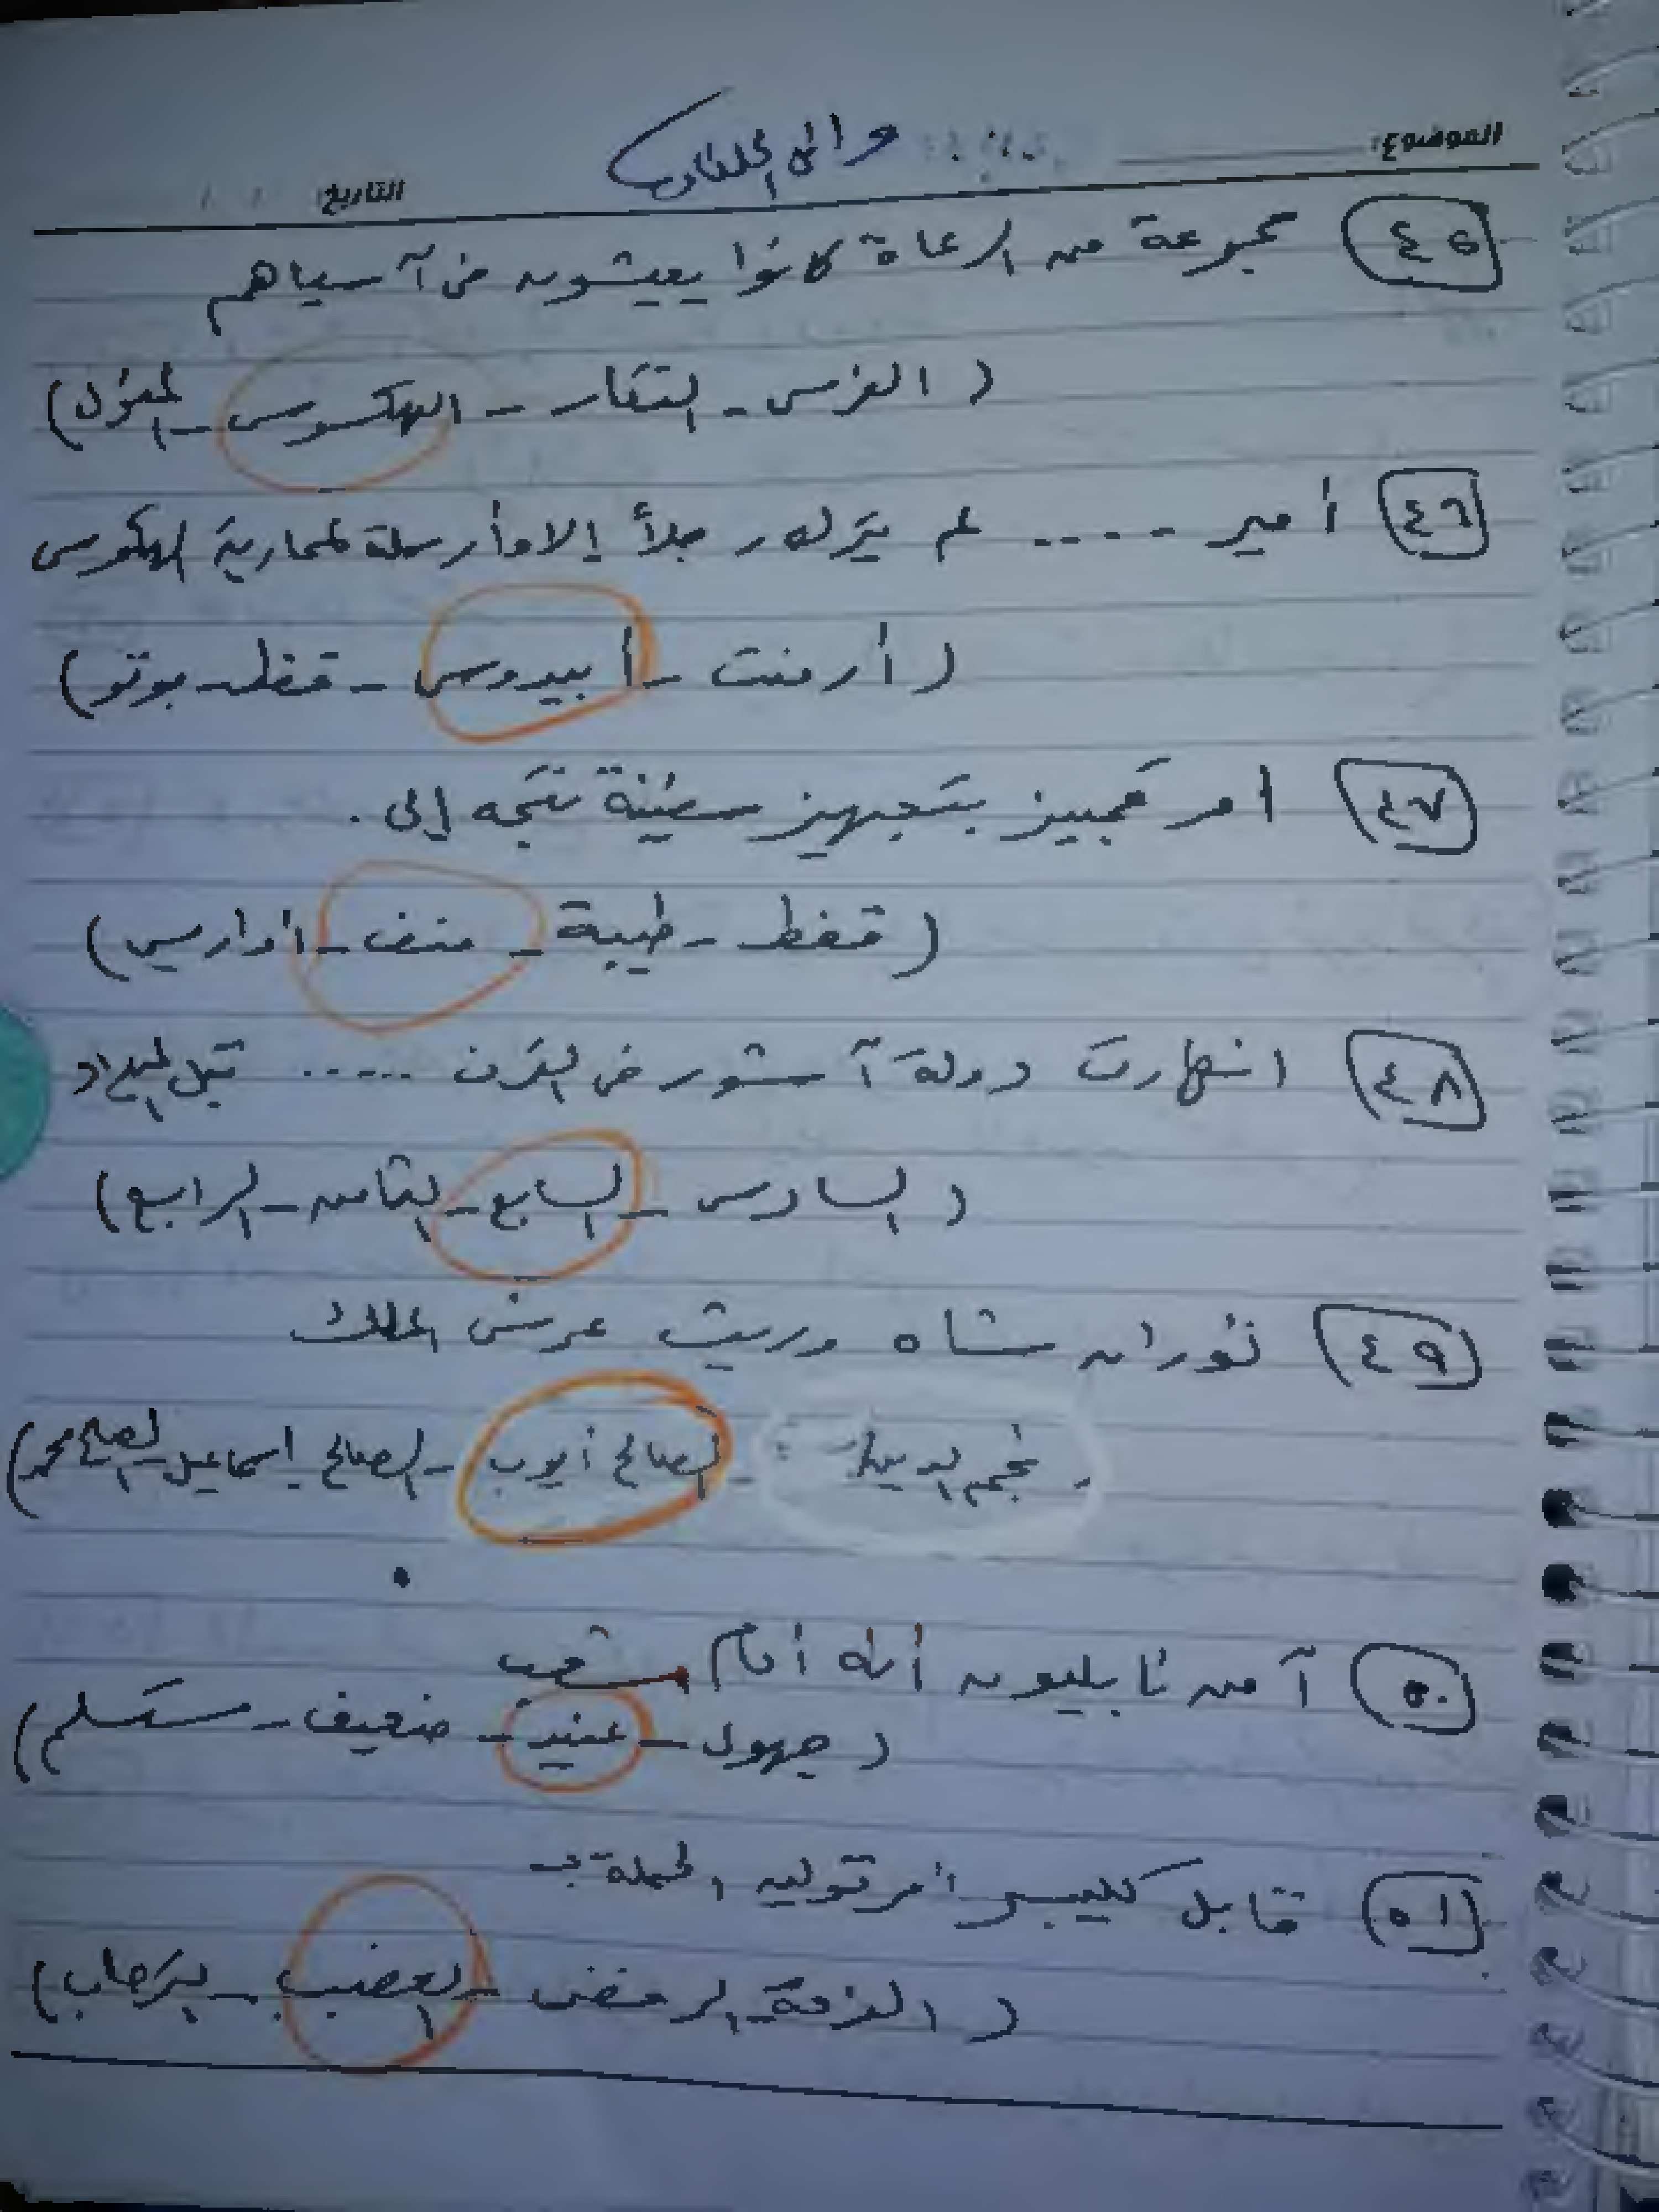 الموضوع:
التاريخ: / /
٤٥ مجموعة من الرعاة كانوا يعيشون فى آسيا هم
( الفرس - التتار - الهكسوس - المغول )
٤٦ أمير ..... لم يترك رجلاً إلا وأرسله لمحاربة الهكسوس
( أرمنت - أبيدوس - قفط - بوتو )
٤٧ امر قمبيز بتجهيز سفينة تتجه إلى .
( قفط - طيبة - منف - أواريس )
٤٨ انهارت دولة آشور فى القرن ..... قبل الميلاد
( السادس - السابع - الثامن - الرابع )
٤٩ توران شاه وريث عرش الملك
( نجم الدين - الصالح أيوب - الصالح إسماعيل - الصالح محمد )
٥٠ آمن نابليون أنه أمام شعب
( جهول - عنيد - ضعيف - مستسلم )
٥١ قابل كليبر أمر توليه الحملة بـ
( الفرحة - الرفض - الغضب - الترحاب )